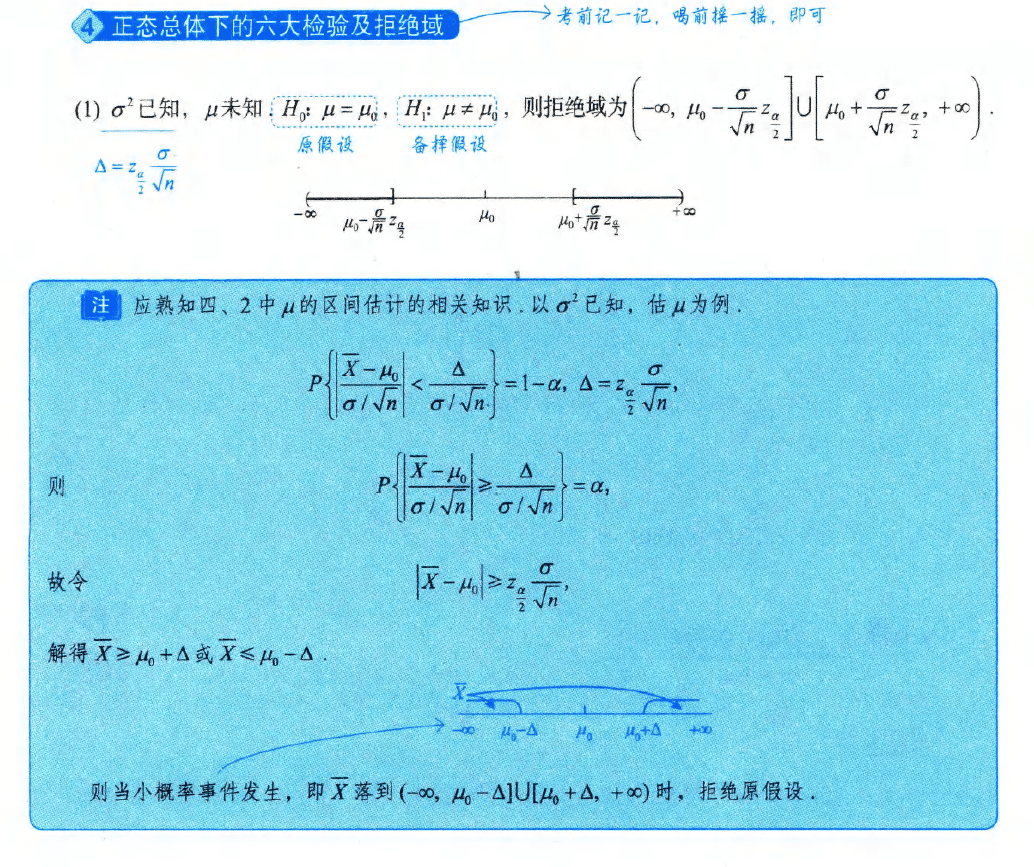 4 正态总体下的六大检验及拒绝域 考前记一记，喝前摇一摇，即可
(1) σ²已知，μ未知. H₀: μ = μ₀，H₁: μ ≠ μ₀，则拒绝域为(−∞, μ₀ − σ/√n z_{α/2}] ∪ [μ₀ + σ/√n z_{α/2}, +∞).
原假设 备择假设
Δ = z_{α/2} σ/√n
−∞ μ₀−σ/√n z_{α/2} μ₀ μ₀+σ/√n z_{α/2} +∞
注 应熟知四、2中μ的区间估计的相关知识. 以σ²已知，估μ为例.
P{|X̄ − μ₀ / σ/√n| < Δ / σ/√n} = 1 − α, Δ = z_{α/2} σ/√n,
则 P{|X̄ − μ₀ / σ/√n| ≥ Δ / σ/√n} = α,
故令 |X̄ − μ₀| ≥ z_{α/2} σ/√n,
解得 X̄ ≥ μ₀ + Δ 或 X̄ ≤ μ₀ − Δ.
X̄
−∞ μ₀−Δ μ₀ μ₀+Δ +∞
则当小概率事件发生，即 X̄ 落到 (−∞, μ₀ − Δ]∪[μ₀ + Δ, +∞) 时，拒绝原假设.